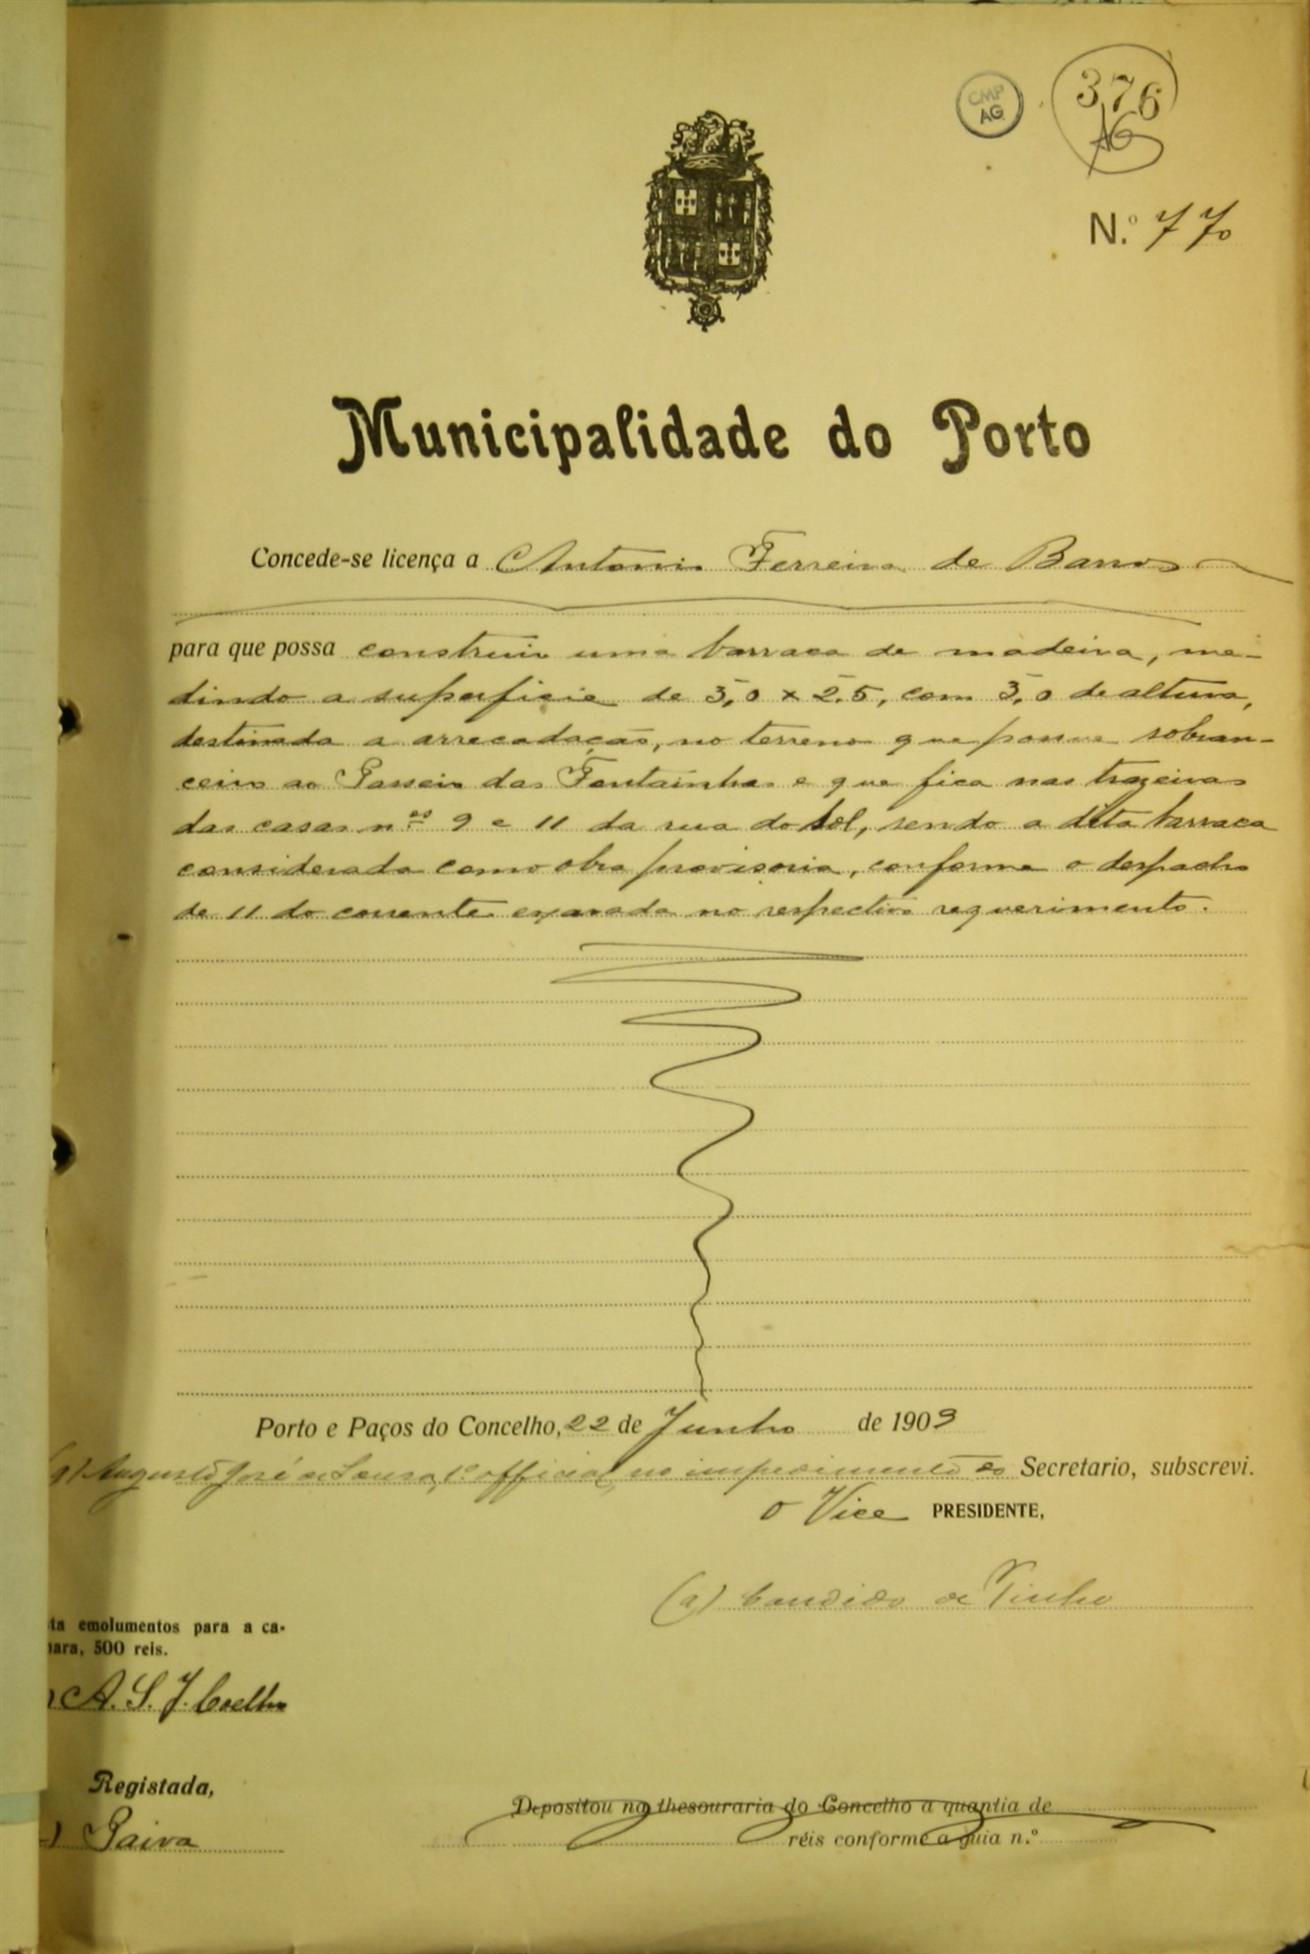 CMP
AG
376
AG
N.º 770
Municipalidade do Porto
Concede-se licença a Antonio Ferreira de Barros
para que possa construir uma barraca de madeira, me-
dindo a superficie de 3,0 x 2,5, com 3,0 de altura,
destinada a arrecadação, no terreno que possue sobran-
ceiro ao Passeio das Fontainhas e que fica nas trazeiras
das casas n.os 9 e 11 da rua do Sol, sendo a dita barraca
considerada como obra provisoria, conforme o despacho
de 11 do corrente exarado no respectivo requerimento.
Porto e Paços do Concelho, 22 de Junho de 1909
(a) Augusto José de Sousa, 1.º official, no impedimento do Secretario, subscrevi.
O Vice PRESIDENTE,
(a) Candido de Pinho
ta emolumentos para a ca-
mara, 500 reis.
) A. S. J. Coelho
Registada,
) Paiva
Depositou na thesouraria do Concelho a quantia de
réis conforme a guia n.º